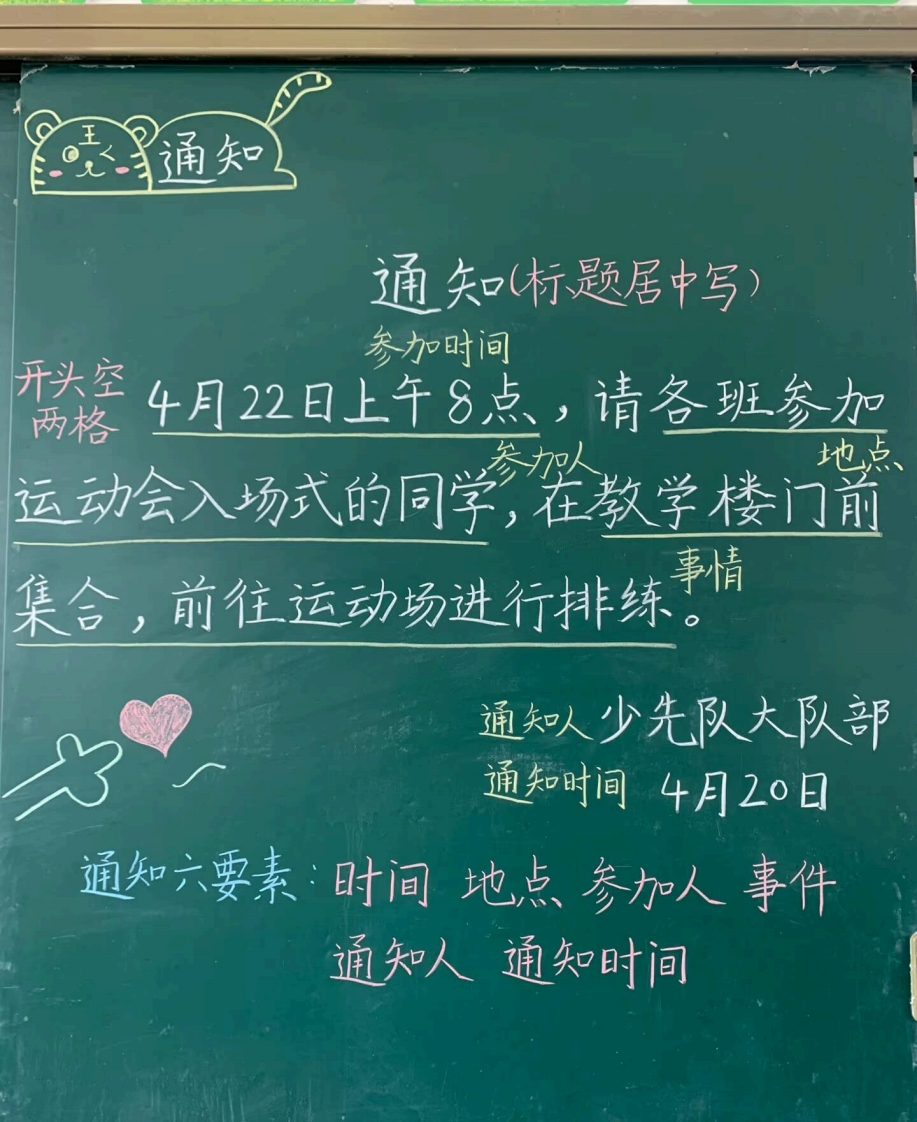 王
通知
通知(标题居中写)
参加时间
开头空
两格
4月22日上午8点，请各班参加
参加人
地点
运动会入场式的同学，在教学楼门前
事情
集合，前往运动场进行排练。
通知人 少先队大队部
通知时间 4月20日
通知六要素：时间 地点 参加人 事件
通知人 通知时间